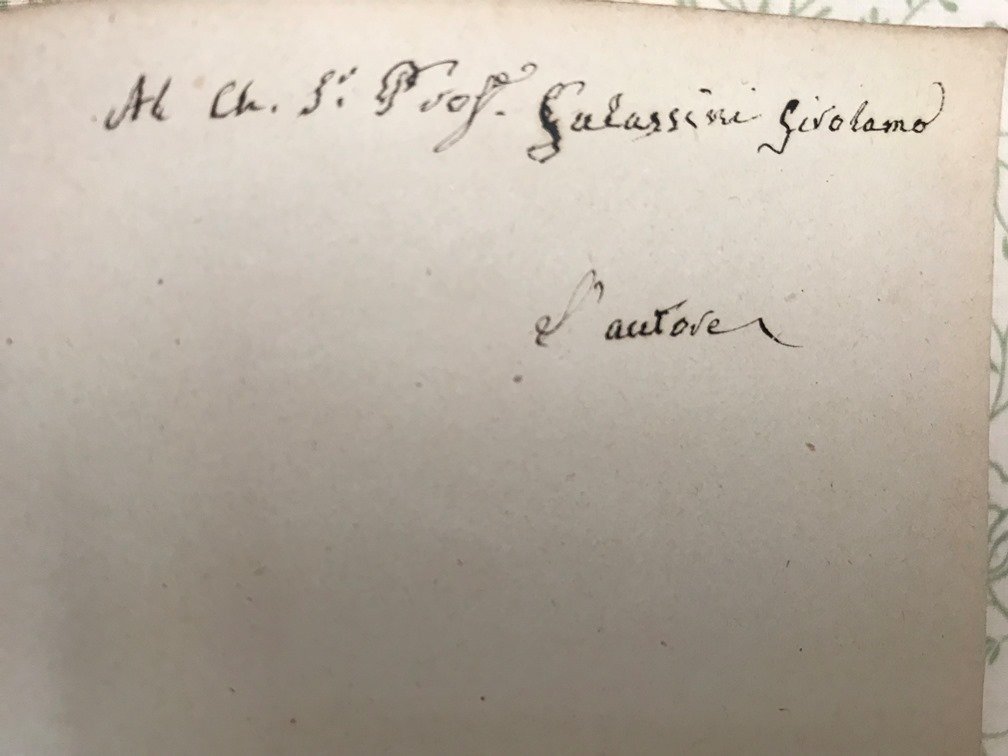 Al Ch. S.r Prof.e Galassini Girolamo
L'autore